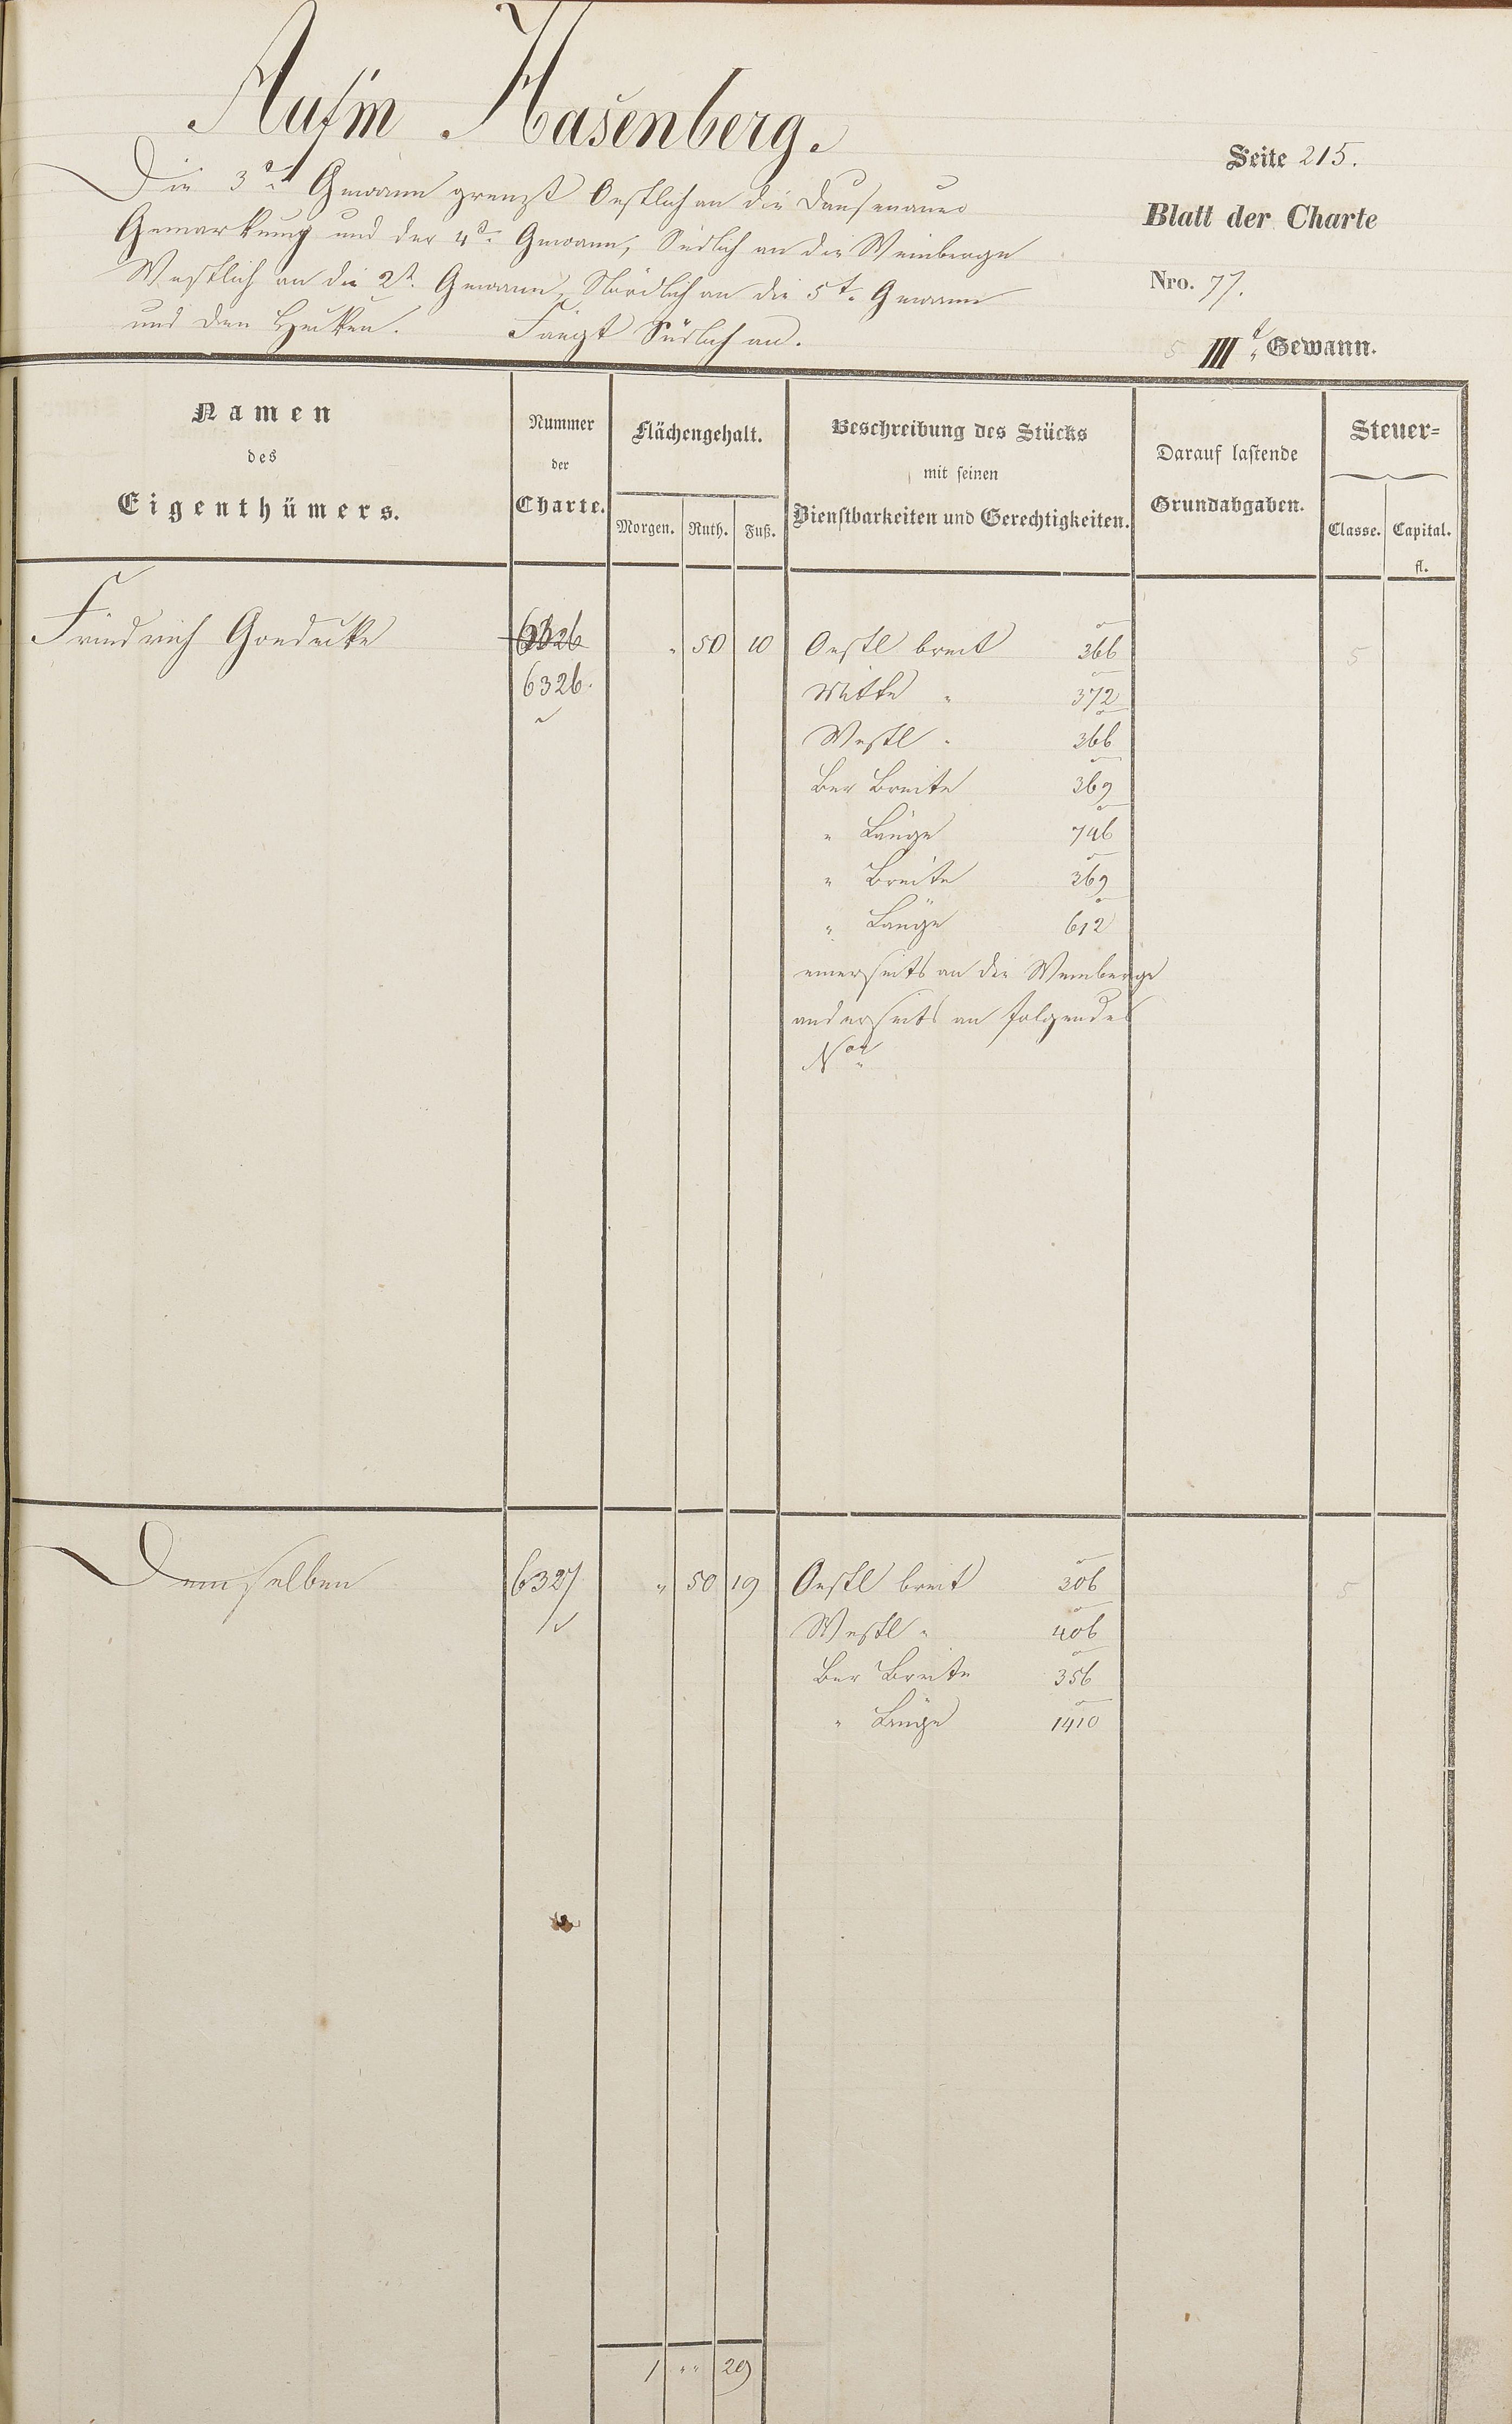 Auf'm Hasenberg.
Seite 215.
Die 3te Gewann grenzt Oestlich an die Dausenauer
Blatt der Charte
Gemarkung und der 4te Gewann, Südlich an die Weinberge
Westlich an die 2te Gewann, Nördlich an die 5te Gewann
Nro. 77.
und den Hecken. Fängt Südlich an.
5 IIIte Gewann.
Namen
des
Eigenthümers.
Nummer
der
Charte.
Flächengehalt.
Morgen. Ruth. Fuß.
Beschreibung des Stücks
mit seinen
Dienstbarkeiten und Gerechtigkeiten.
Darauf lastende
Grundabgaben.
Steuer=
Classe. Capital.
fl.
Friedrich Goedecke 6326 " 50 10 Oestl breit 366 5
6326. Mitte " 372
Westl " 366
Ber Breite 369
" Länge 746
" Breite 369
" Länge 612
einerseits an die Weinberge
anderseits an folgendes
Nor
Demselben 6327 " 50 19 Oestl breit 306 5
Westl " 406
Ber Breite 356
" Länge 1410
1 " " 29